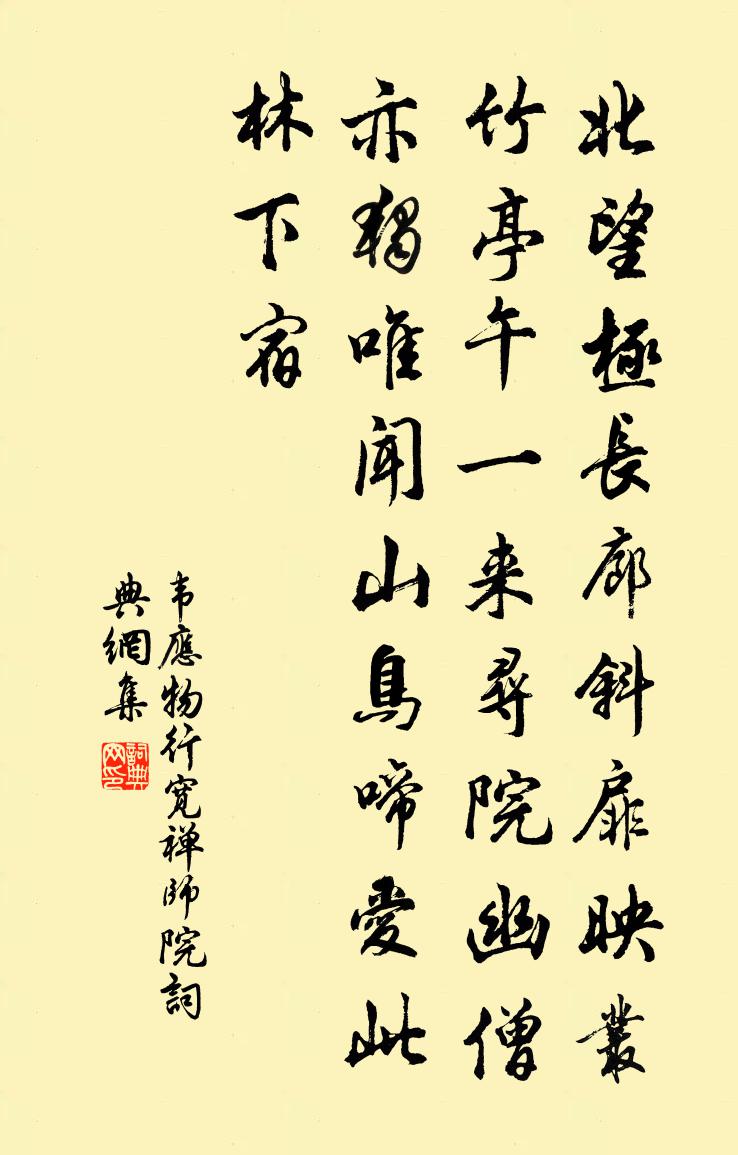 北望極長廊斜扉映叢
竹亭午一来尋院幽僧
亦獨唯聞山鳥啼愛此
林下宿
韦應物行寬禅師院詞
典網集
詞典网印